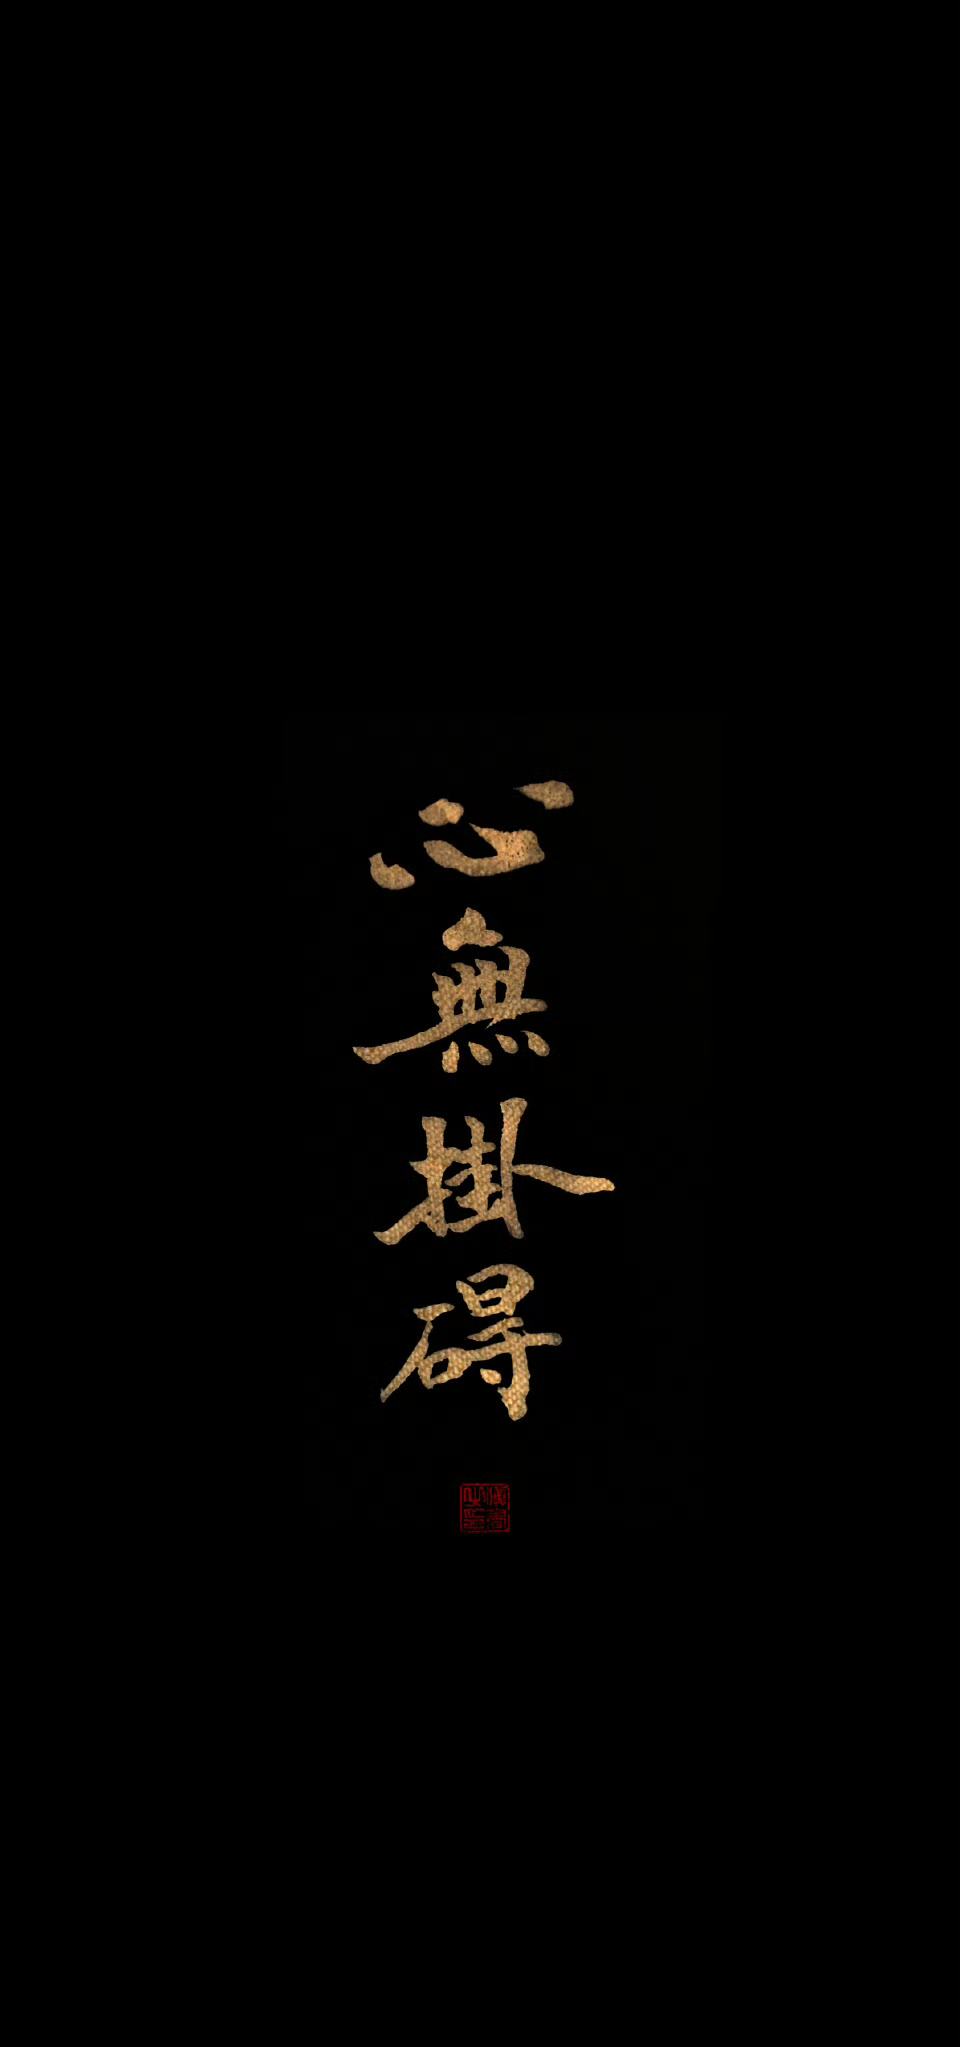 心無掛碍